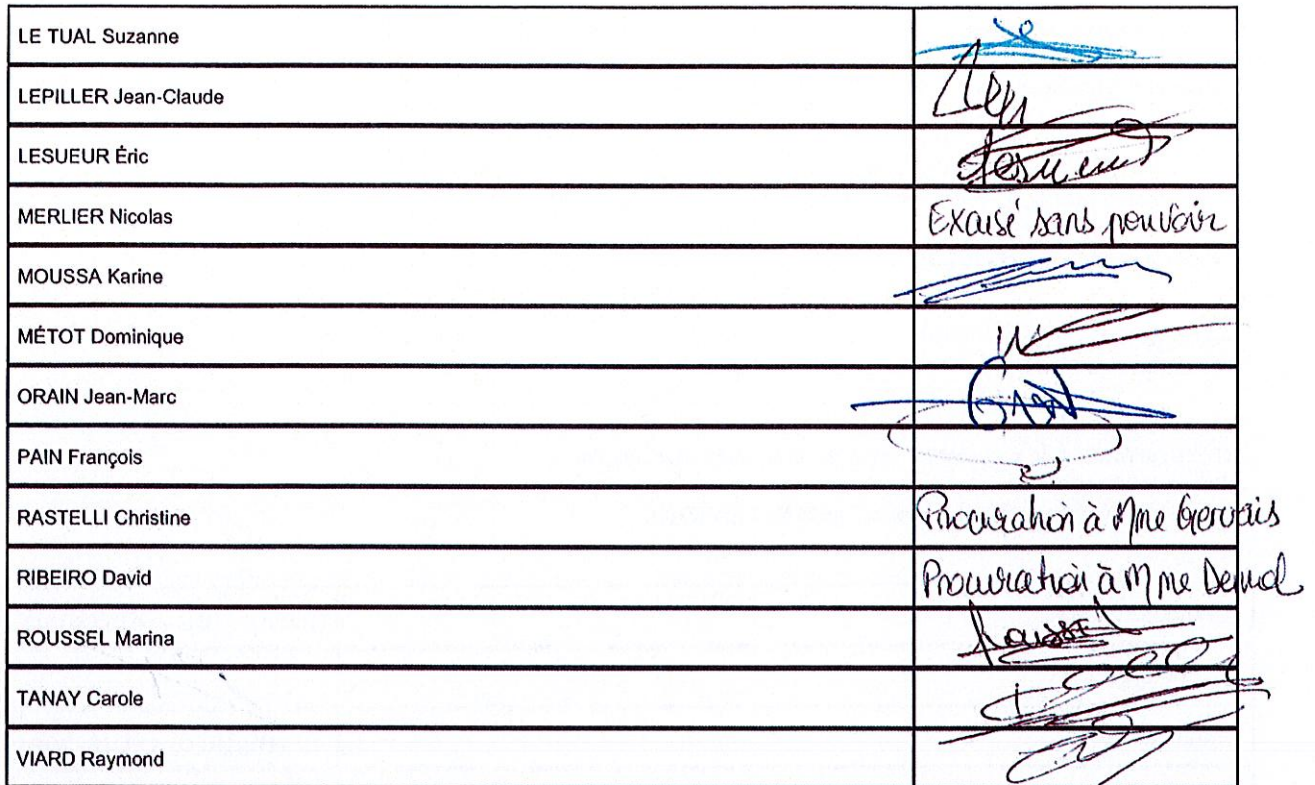 LE TUAL Suzanne
LEPILLER Jean-Claude
LESUEUR Éric
MERLIER Nicolas Excusé sans pouvoir
MOUSSA Karine
MÉTOT Dominique
ORAIN Jean-Marc
PAIN François
RASTELLI Christine Procuration à Mme Gervais
RIBEIRO David Procuration à Mme
ROUSSEL Marina
TANAY Carole
VIARD Raymond